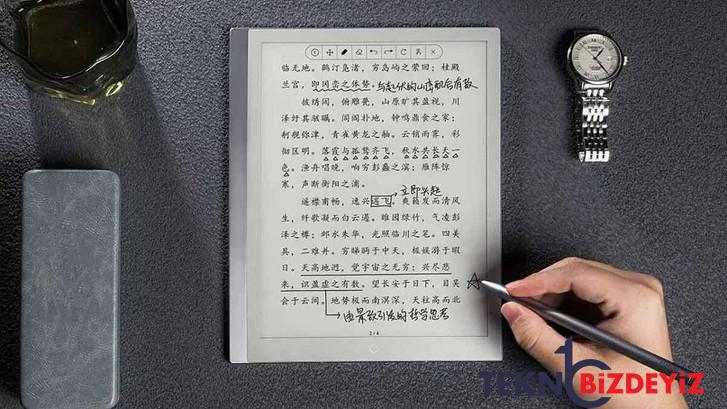 临无地。鹤汀凫渚，穷岛屿之萦回；桂殿
兰宫，即冈峦之体势。与起伏的山峦配合有致
披绣闼，俯雕甍，山原旷其盈视，川
泽纡其骇瞩。闾阎扑地，钟鸣鼎食之家；
舸舰弥津，青雀黄龙之舳。云销雨霁，彩
彻区明。落霞与孤鹜齐飞，秋水共长天一
色。渔舟唱晚，响穷彭蠡之滨；雁阵惊
寒，声断衡阳之浦。
立即兴起
遥襟甫畅，逸兴遄飞。爽籁发而清风
生，纤歌凝而白云遏。睢园绿竹，气凌彭
泽之樽；邺水朱华，光照临川之笔。四美
具，二难并。穷睇眄于中天，极娱游于暇
日。天高地迥，觉宇宙之无穷；兴尽悲
来，识盈虚之有数。望长安于日下，目吴
会于云间。地势极而南溟深，天柱高而北
由景致引发的哲学思考
2/4
TEKNO BiZDEYiZ